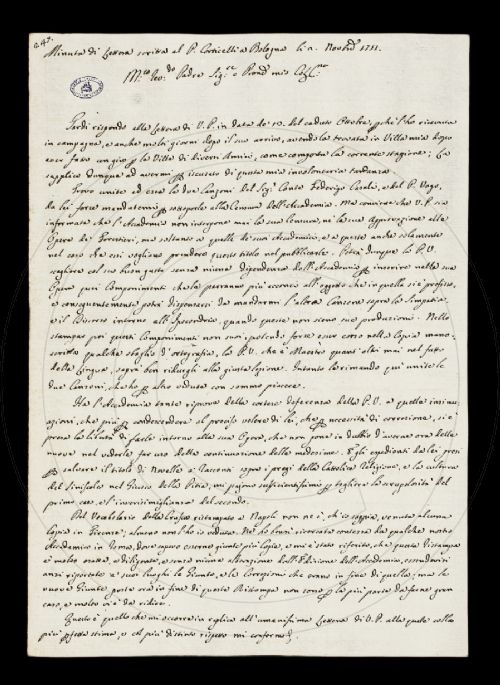 247.
Minuta di Lettera scritta al P. Corticelli a Bologna li 2. Novebre 1751.
Tardi rispondo alla Lettera di V. P. in data de' 10. del caduto Ottobre, perchè l'ho ricevuta
in campagna, e anche molti giorni dopo il suo arrivo, avendola trovata in Villa mia dopo
aver fatto un giro la Villa di diversi Amici, come comporta la corrente stagione; La
supplico dunque ad avermi per iscusato di questa mia involontaria tardanza.
Trovo unite ad essa le due Canzoni del Sig. Conte Federigo Casali, e del P. Vago,
da lei forse mandatemi per sottoporle alla Censura dell'Accademia. Ma conviene che V. P. sia
informata che l'Accademia non interpone mai la sua Censura, nè la sua Approvazione alle
Opere de' Forestieri, ma soltanto a quelle de' suoi Accademici, e a queste anche solamente
nel caso che essi vogliano prendere questo titolo nel pubblicarle. Potrà dunque la P. V.
scegliere col suo buon gusto senza niuna dipendenza dall'Accademia per inserire nella sua
Opera quei Componimenti che le parranno più acconci all'oggetto che in quella si è prefisso,
e conseguentemente potrà dispensarsi da mandarmi l'altra Canzone sopra la Simpatia,
e il Discorso intorno all'Ipocondria, quando queste non sieno sue produzioni. Nello
stampar poi questi Componimenti non sarà forse
scritta qualche sbaglio d'ortografia, la P. V. che è Maestro quant'altri mai nel fatto
della Lingua, saprà ben ridurgli alla giusta lezione. Intanto le rimando qui unite le
due Canzoni, che ho per altro vedute con sommo piacere.
Ha l'Accademia tante riprove della cortese deferenza della P. V. a quelle insinuazioni,
che più per condescendere al preciso volere di lei, che per necessità di correzione, si è
presa la libertà di farle intorno alla sua Opera, che non pone in dubbio d'averne ora delle
nuove nel vederle far uso della continuazione delle medesime. E gli espedienti da lei presi
per salvare il titolo di Novelle a' Racconti sopra i pregi della Cattolica Religione, e la cultura
del Siniscalco nel Giuoco della Pitia, mi pajono sufficientissimi per togliere la scrupolosità del
primo caso, e l'inverisimiglianza del secondo.
Del Vocabolario della Crusca ristampato a Napoli non ne è, ch'io sappia, venuta alcuna
Copia in Firenze; almeno non l'ho io veduta. Ne ho bensì ricercata contezza da qualche nostro
Accademico in Roma, dove eziandio esserne giunte più Copie, e mi è stato riferito, che questa Ristampa
è molto esatta, e diligente, e senza niuna alterazione dell'Edizione dell'Accademia, essendovisi
anzi riportate a' suoi luoghi le Giunte, e le Correzioni che erano in fine di quella; ma le
nuove Giunte poste ora in fine di questa Ristampa non sono per la più parte da farne gran
caso, e molto vi è da ridire.
Questo è quello che mi occorreva replicare all'umanissima Lettera di V. P. alla quale colla
più perfetta stima, e col più distinto rispetto mi confermo